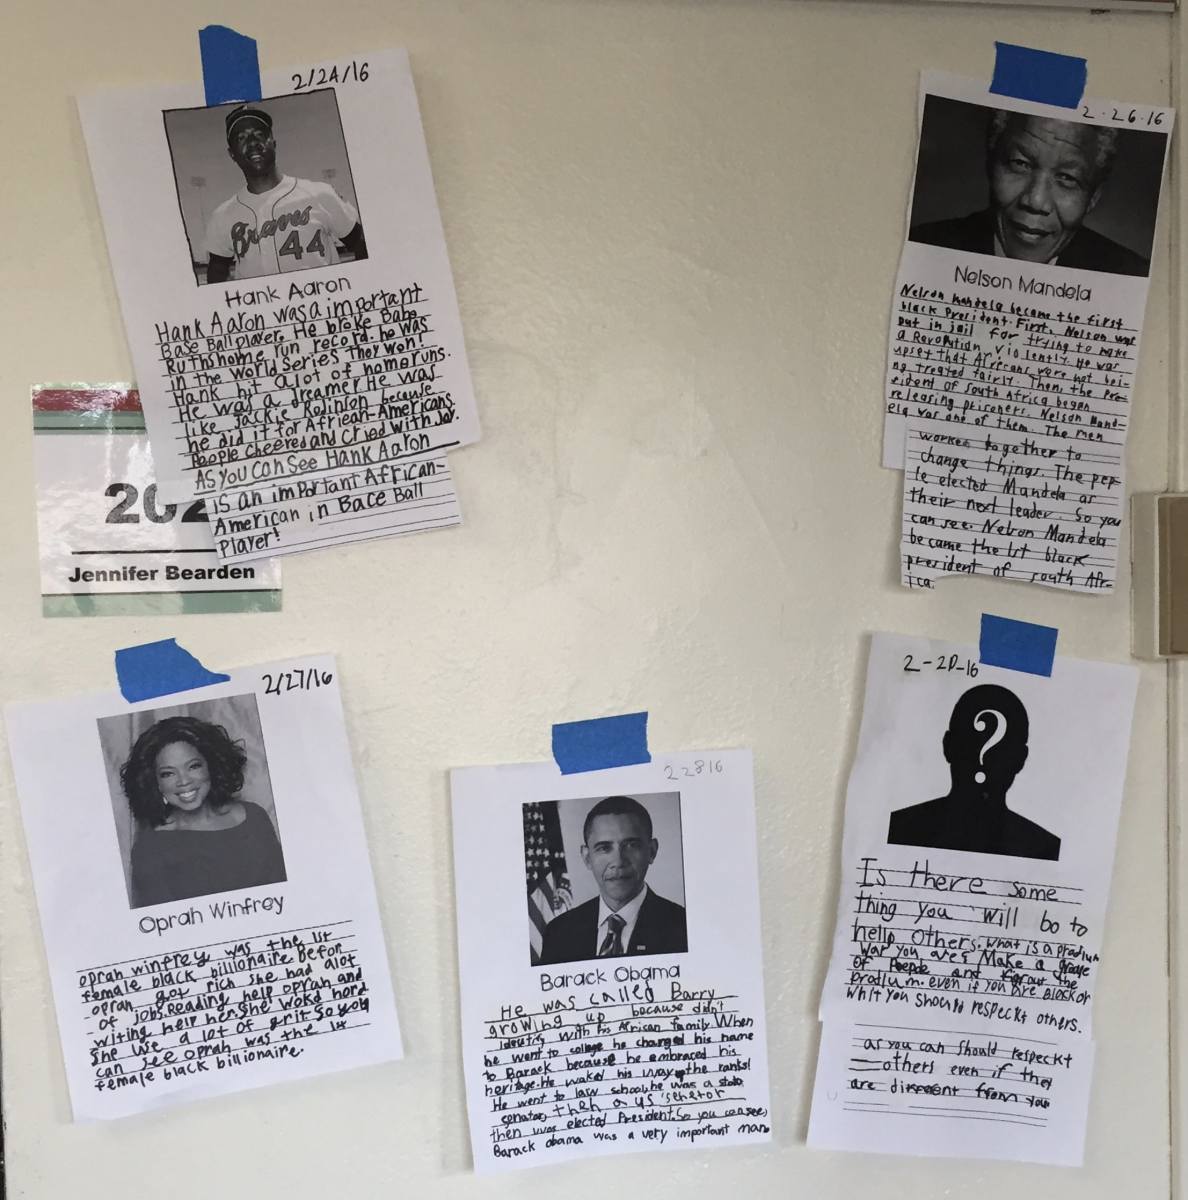 2/24/16
Braves
44
Hank Aaron
Hank Aaron was a important
Base Ball player. He broke Babe
Ruths home run record. he was
in the World Series They won!
Hank hit a lot of home runs.
He was a dreamer He was
like Jackie Robinson because
he did it for African-Americans.
People cheered and cried with Joy.
As you can see Hank Aaron
is an important African-
American in Bace Ball
Player!
202
Jennifer Bearden
2-26-16
Nelson Mandela
Nelson Mandela became the first
black President. First, Nelson was
put in jail for trying to make
a Revolution violently. He was
upset that Africans were not bei-
ng treated fairly. Then, the pre-
sident of South Africa began
releasing prisoners. Nelson Mand-
ela was one of them. The men
worked together to
change things. The pep-
le elected Mandela as
their next leader. So you
can see. Nelson Mandela
became the 1st black
president of south Afr-
ica.
2/27/16
Oprah Winfrey
oprah winfrey was the 1st
female black billionaire. Befor
oprah got rich she had alot
of jobs. Reading help oprah and
witing help her. She wokd hord
She use a lot of grit so you
can see oprah was the 1st
female black billionaire.
22816
Barack Obama
He was called Barry
growing up because didn't
identify with his African family. When
he went to collage he changed his name
to Barack because he embraced his
heritage. He waked his way up the ranks!
He went to law school, he was a state
senator, then a US senator
then was elected President. So you can see,
Barack obama was a very important man.
2-20-16
?
Is there some
thing you will bo to
help others. What is a
war you are? Make a
of Peepde and the
even if you are Black or
whit you should respeckt others.
as you can should respeckt
others even if they
are different from you